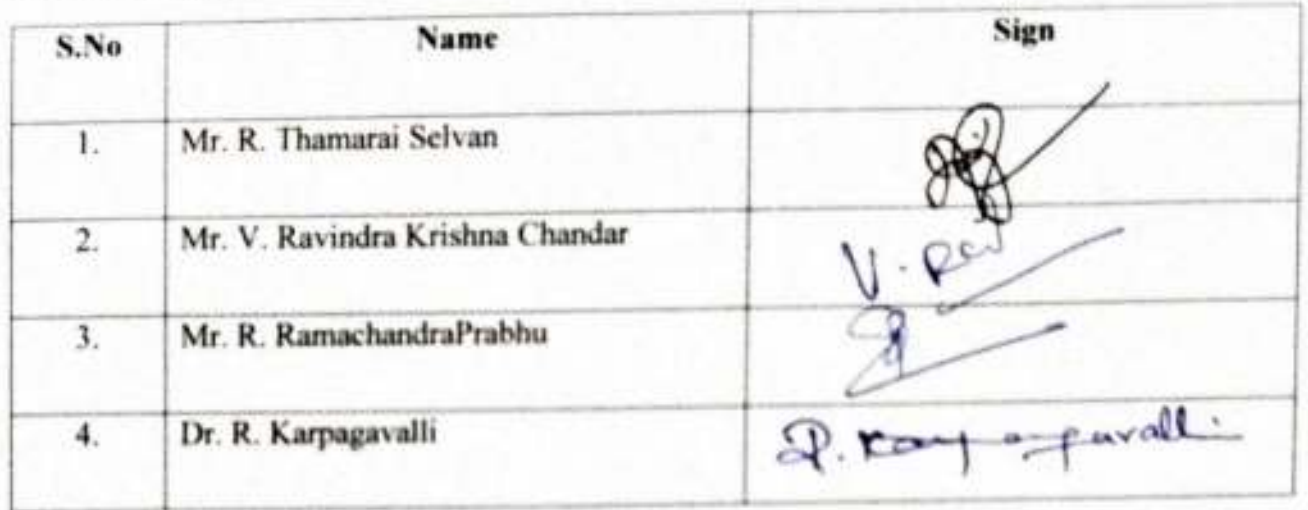 S.No Name Sign
1. Mr. R. Thamarai Selvan
2. Mr. V. Ravindra Krishna Chandar V. Rav
3. Mr. R. RamachandraPrabhu
4. Dr. R. Karpagavalli R. Karpagavalli